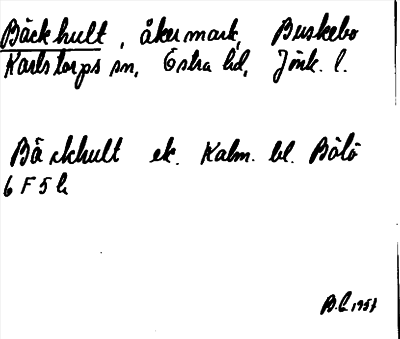 Bäckhult, åkermark, Buskebo
Karlstorps sn, Östra hd, Jönk. l.
Bäckhult ek. Kalm. bl. Bölö
6 F 5 h
1957